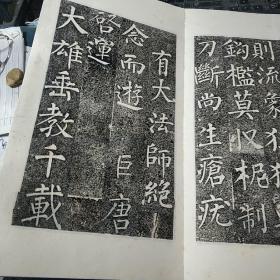 則流象
鈎檻莫収柅制
刃斷尚生瘡疣
有大法師絕
念而遊巨唐
啓運
大雄垂教千載